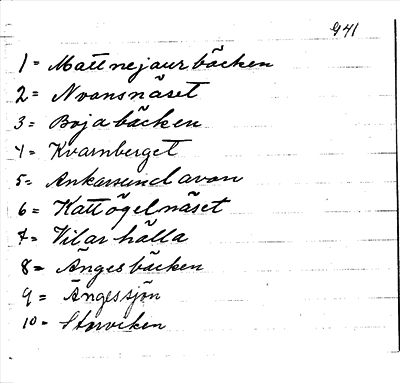 941
1 = Mattnejaurbäcken
2 = Nvansnäset
3 = Bojabäcken
4 = Kvarnberget
5 = Ankarsundavan
6 = Kattögelnäset
7 = Vilarhälla
8 = Ängesbäcken
9 = Ängessjön
10 = Storviken